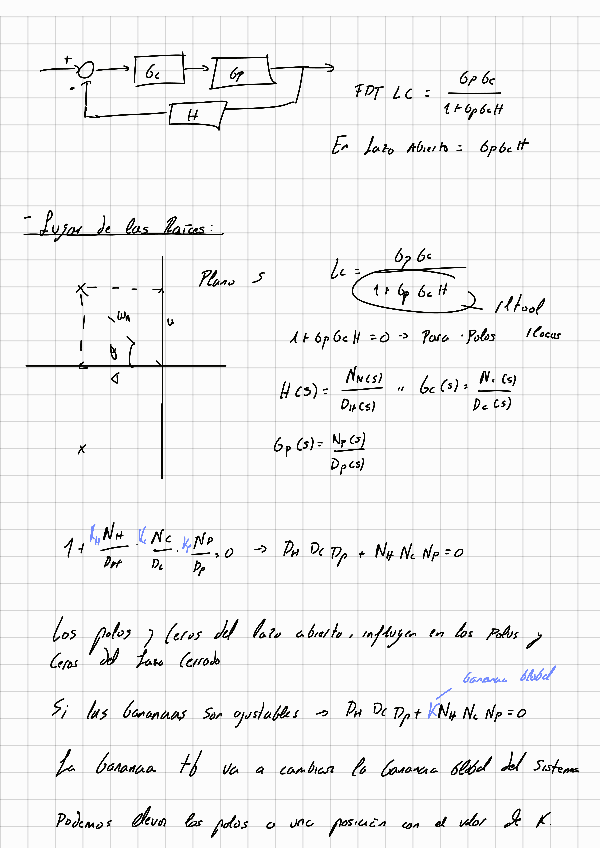 +
-
Gc
Gp
H
FDT LC = GpGc / 1+GpGcH
En Lazo Abierto = GpGcH
- Lugar de las Raíces:
Plano S
Lc = Gp Gc / 1+Gp Gc H
rltool
1+GpGcH=0 → Para Polos rlocus
ωn
θ
H(s) = NH(s) / DH(s) Gc(s) = Nc(s) / Dc(s)
Gp(s) = Np(s) / Dp(s)
1+ KH NH/DH · Kc Nc/Dc · Kp Np/Dp = 0 → DH Dc Dp + NH Nc Np = 0
Los polos y ceros del lazo abierto, influyen en los Polos y
Ceros del Lazo Cerrado
Ganancia Global
Si las Ganancias son ajustables → DH Dc Dp + K NH Nc Np = 0
La Ganancia tb va a cambiar la Ganancia Global del Sistema
Podemos llevar los polos a una posición con el valor de K.